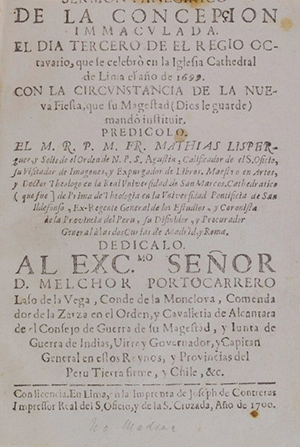 SERMON PANEGIRICO
DE LA CONCEPCION
IMMACVLADA.
EL DIA TERCERO DE EL REGIO OC-
tavario, que se celebrò en la Iglesia Cathedral
de Lima el año de 1699.
CON LA CIRCVNSTANCIA DE LA NUE-
va Fiesta, que su Magestad (Dios le guarde)
mandò instituir.
PREDICOLO.
EL M. R. P. M. FR. MATHIAS LISPER-
guer, y Solis del Orden de N. P. S. Agustin, Calificador de el S. Oficio,
su Visitador de Imagenes, y Expurgador de Libros. Maestro en Artes,
y Doctor Theologo en la Real Universidad de San Marcos, Cathedratico
(que fue) de Prima de Theologia en la Universidad Pontificia de San
Ildefonso, Ex-Regente General de los Estudios, y Coronista
de la Provincia del Peru, su Difinidor, y Procurador
General à las dos Curias de Madrid, y Roma.
DEDICALO.
AL EXC.MO SEÑOR
D. MELCHOR PORTOCARRERO
Laso de la Vega, Conde de la Monclova, Comenda
dor de la Zarza en el Orden, y Cavalleria de Alcantara
de el Consejo de Guerra de su Magestad, y Iunta de
Guerra de Indias, Virrey Governador, y Capitan
General en estos Reynos, y Provincias del
Peru Tierra firme, y Chile, &c.
Con licencia. En Lima, en la Imprenta de Joseph de Contreras
Impressor Real del S. Oficio, y de la S. Cruzada, Año de 1700.